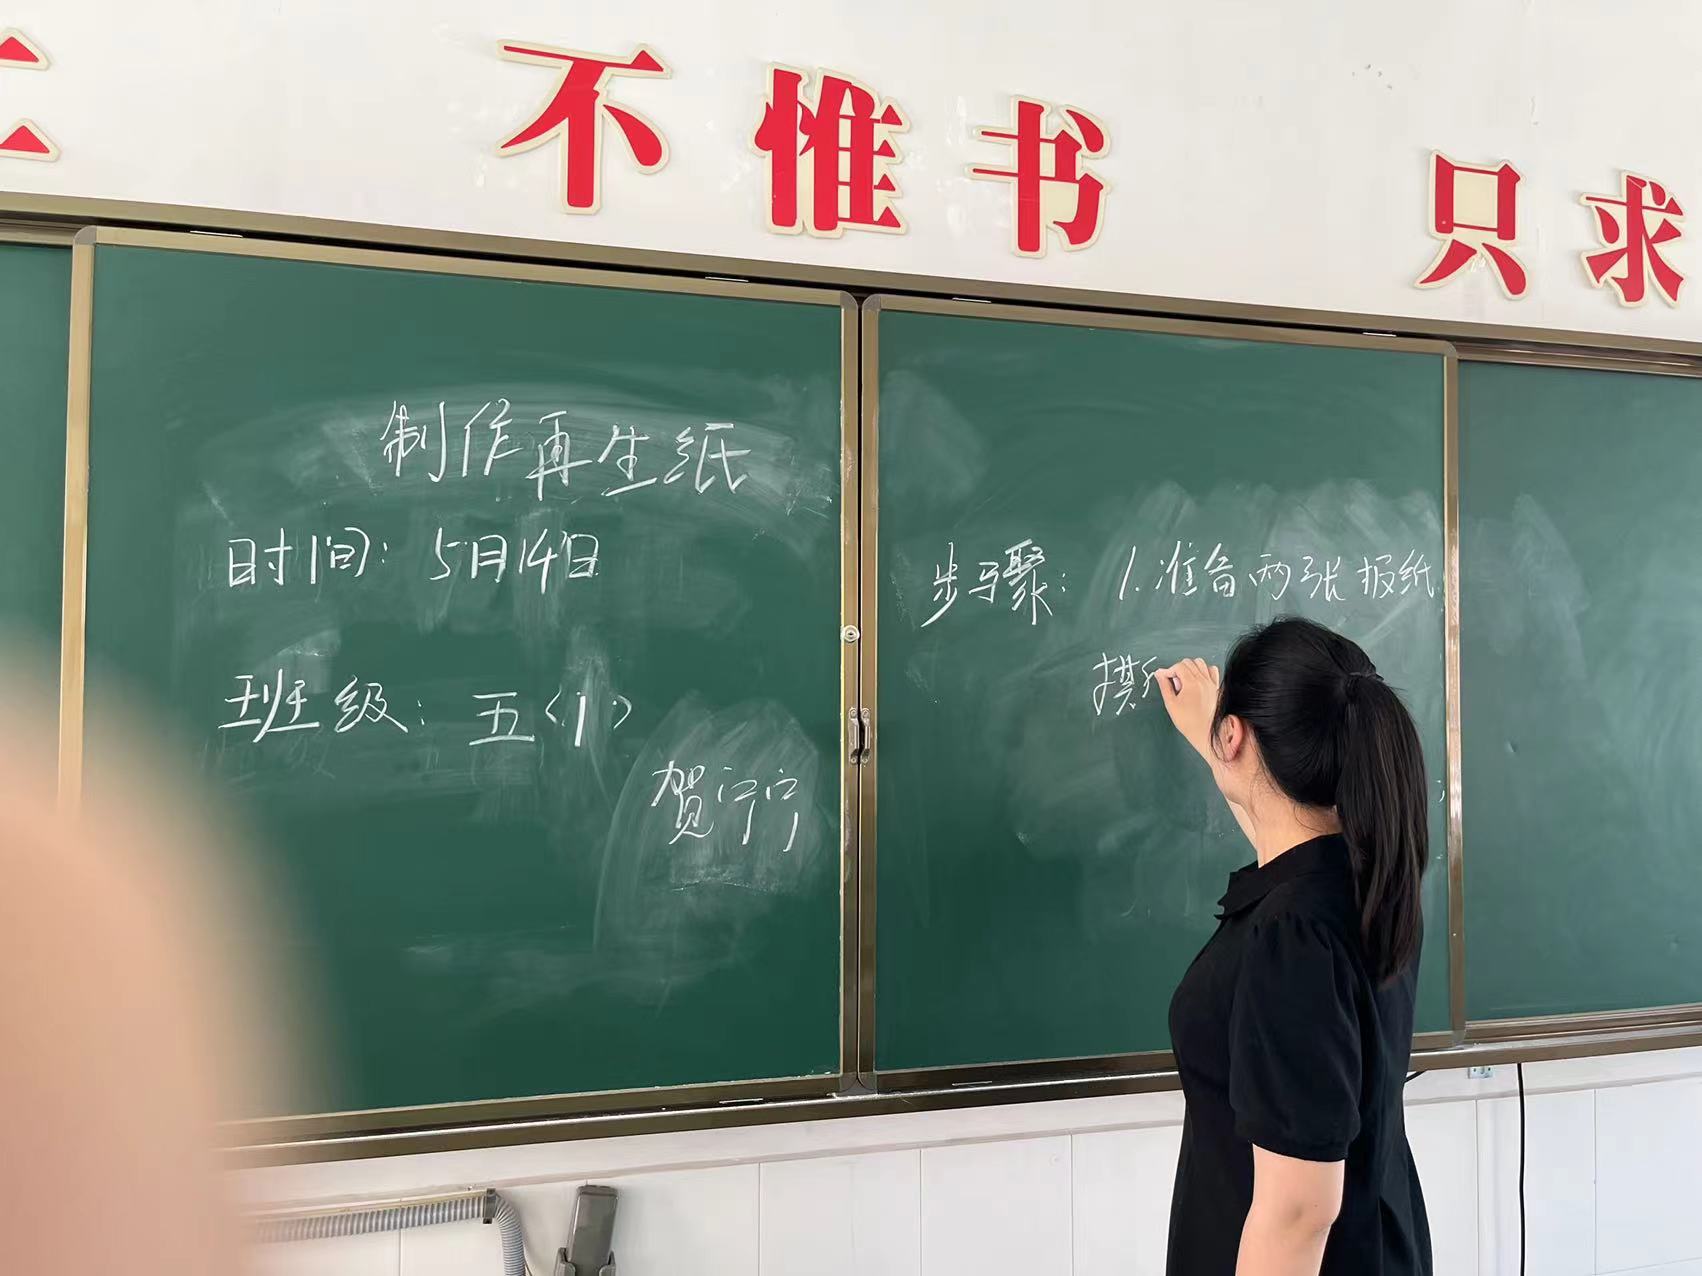 不惟书 只求
制作再生纸
时间：5月14日
班级：五〈1〉
贺宁宁
步骤：1.准备两张报纸